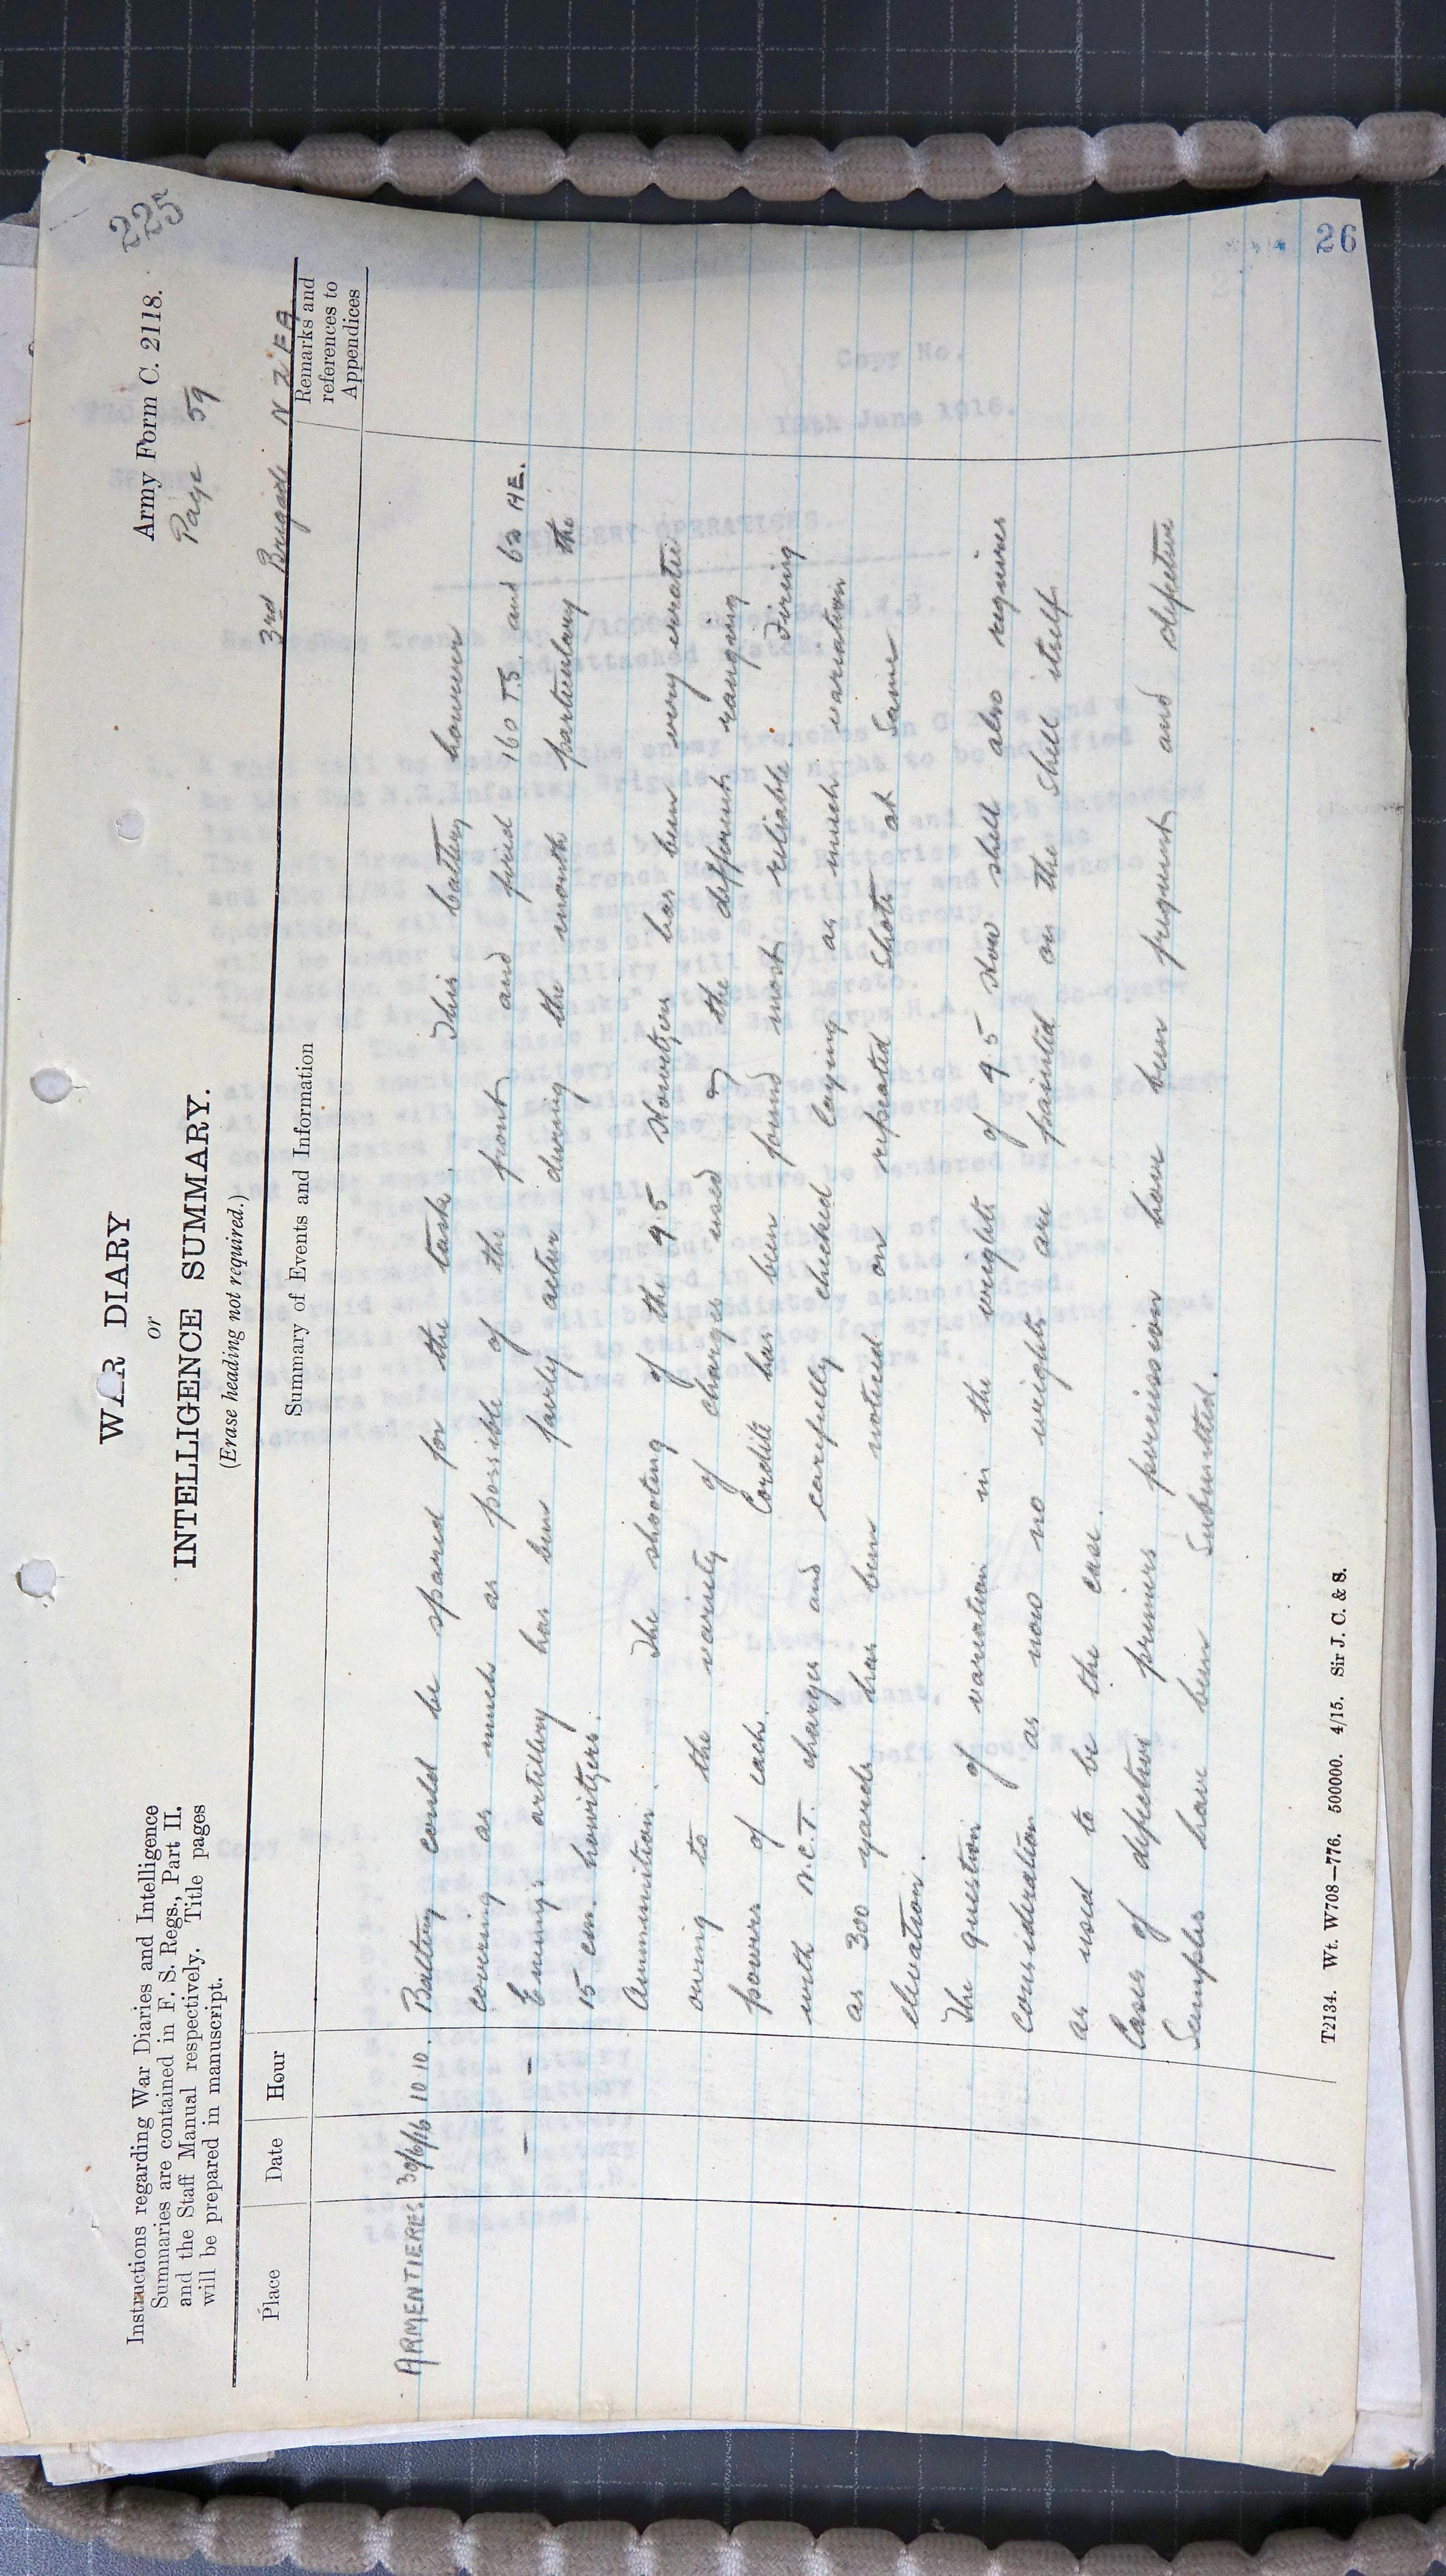 225
Army Form C. 2118.
Page 59
WAR DIARY
or
INTELLIGENCE SUMMARY.
(Erase heading not required.)
Instructions regarding War Diaries and Intelligence
Summaries are contained in F. S. Regs., Part II.
and the Staff Manual respectively. Title pages
will be prepared in manuscript.
3rd Brigade N Z F A
Place Date Hour Summary of Events and Information Remarks and references to Appendices
ARMENTIERES 30/6/16 10 10. Battery could be spared for the task. This battery however
covering as much as possible of the front and fired 160 T.S. and 62 HE.
— — Enemy's artillery has been fairly active during the month particulary the
15 cm. howitzers.
Ammunition. The shooting of the 4.5 Howitzers has been very erratic
owing to the variety of charges used & the different ranging
powers of each. Cordite has been found most reliable. Firing
with N.C.T. charges and carefully checked laying as much variation
as 300 yards has been noticed on repeated shots at same
elevation.
The question of variation in the weights of 4.5 How shell also requires
consideration as now no weights are painted on the shell itself
as used to be the case.
Cases of defective primers percission have been frequent and defective
Samples have been Submitted.
T2134. Wt. W708—776. 500000. 4/15. Sir J. C. & S.
26